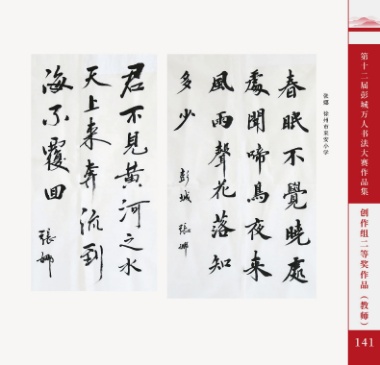 春眠不覺曉處
處聞啼鳥夜来
風雨聲花落知
多少
彭城 張娜
君不見黄河之水
天上来奔流到
海不復回
張娜
张娜 徐州市东安小学
第十二届彭城万人书法大赛作品集
创作组二等奖作品（教师）
141